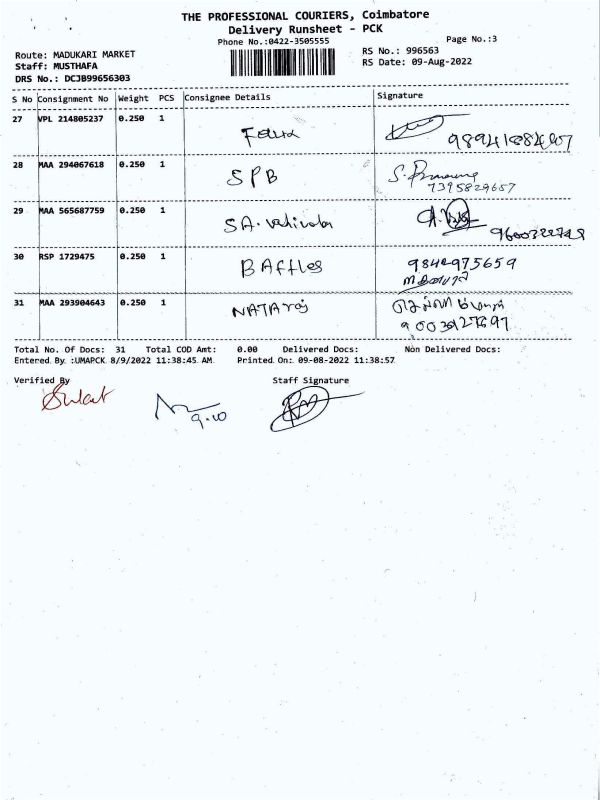 THE PROFESSIONAL COURIERS, Coimbatore
Delivery Runsheet - PCK
Phone No.:0422-3505555
Page No.:3
Route: MADUKARI MARKET
RS No.: 996563
Staff: MUSTHAFA
RS Date: 09-Aug-2022
DRS No.: DCJB99656303
S No Consignment No Weight PCS Consignee Details Signature
27 VPL 214805237 0.250 1
28 MAA 294067618 0.250 1 SPB
7395829657
29 MAA 565687759 0.250 1 SA.
30 RSP 1729475 0.250 1 BAffles 9842975659
31 MAA 293904643 0.250 1 NATAraj
Total No. Of Docs: 31 Total COD Amt: 0.00 Delivered Docs: Non Delivered Docs:
Entered By :UMAPCK 8/9/2022 11:38:45 AM Printed On: 09-08-2022 11:38:57
Verified By Staff Signature
9.10